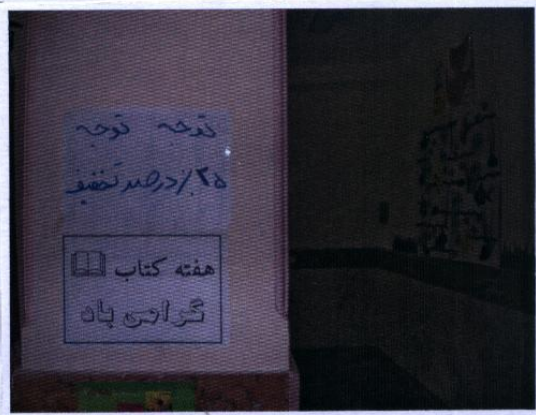 توجه توجه
۲۵٪ درصد تخفیف
هفته کتاب
گرامی باد